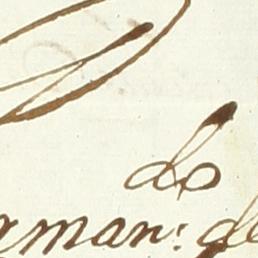 do
rman: de